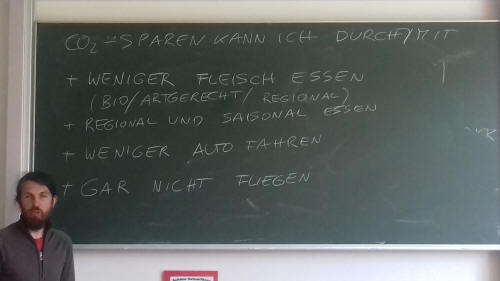 CO₂-SPAREN KANN ICH DURCH/MIT
+ WENIGER FLEISCH ESSEN
(BIO/ARTGERECHT/REGIONAL)
+ REGIONAL UND SAISONAL ESSEN
+ WENIGER AUTO FAHREN
+ GAR NICHT FLIEGEN